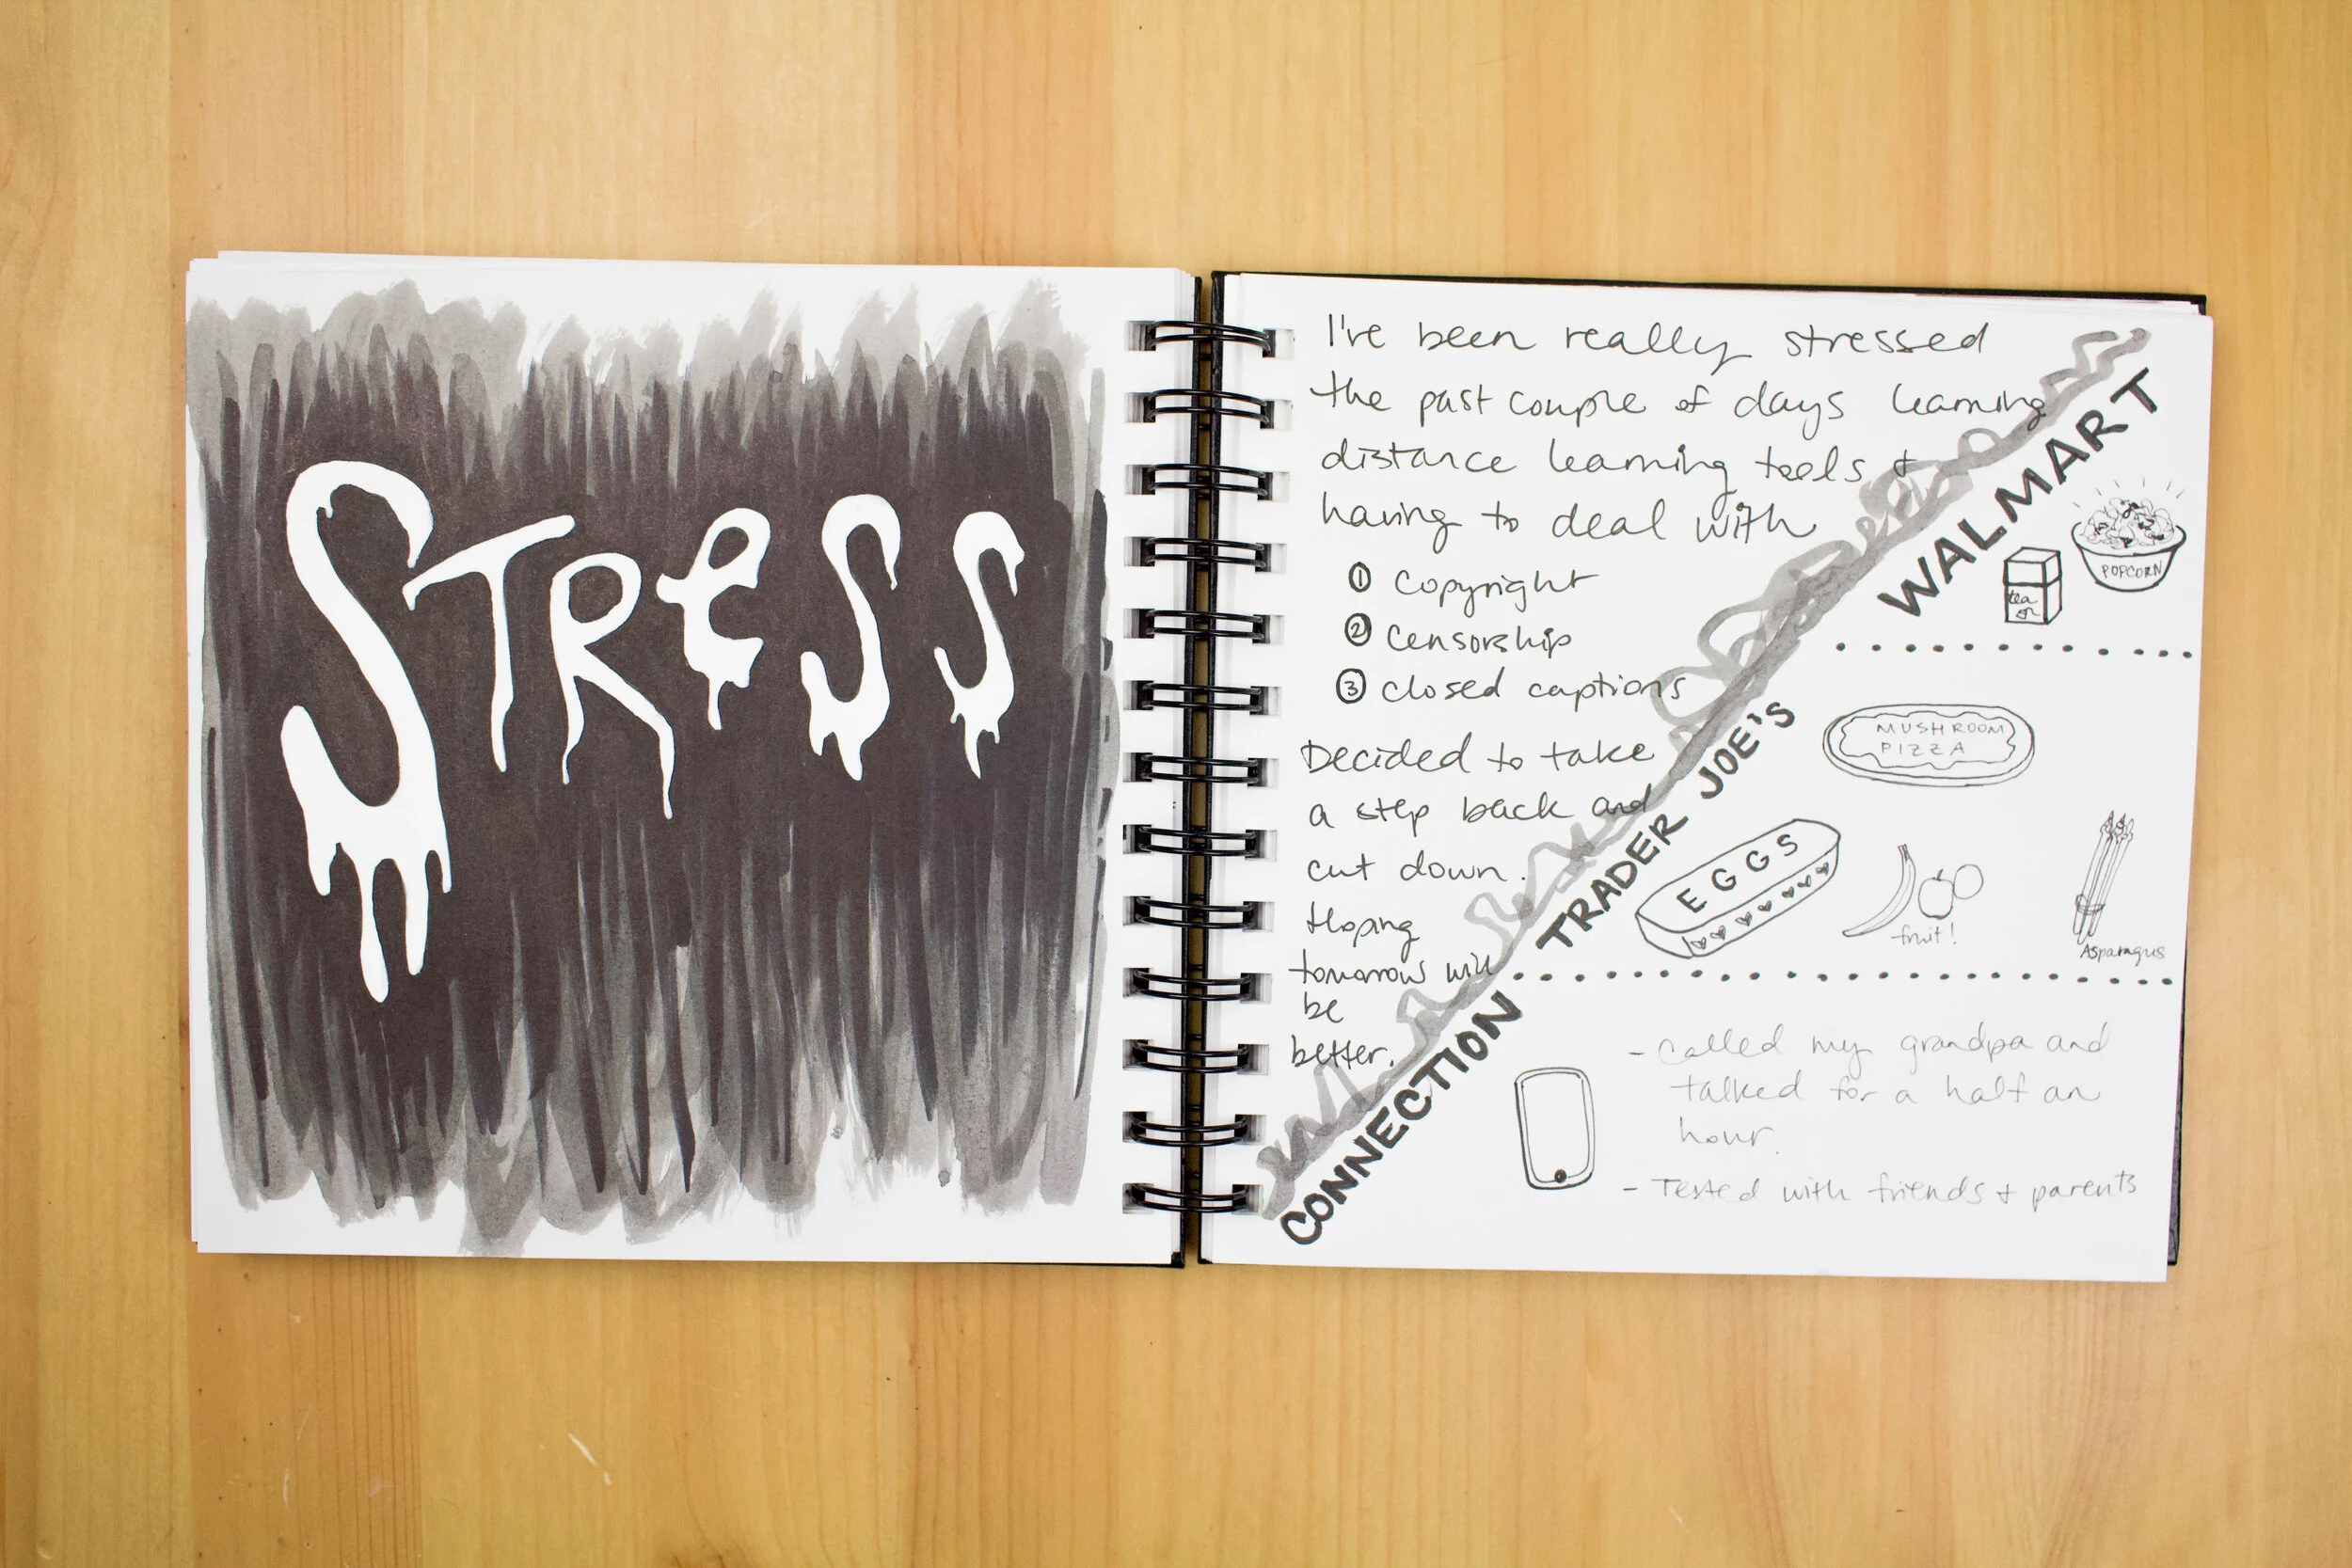 STRESS
I've been really stressed
the past couple of days learning
distance learning tools &
having to deal with
① Copyright
② Censorship
③ closed captions
Decided to take
a step back and
cut down.
Hoping
tomorrow will
be
better.
WALMART
POPCORN
tea
TRADER JOE'S
MUSHROOM
PIZZA
EGGS
fruit!
Asparagus
CONNECTION
- Called my grandpa and
talked for a half an
hour.
- Tested with friends + parents